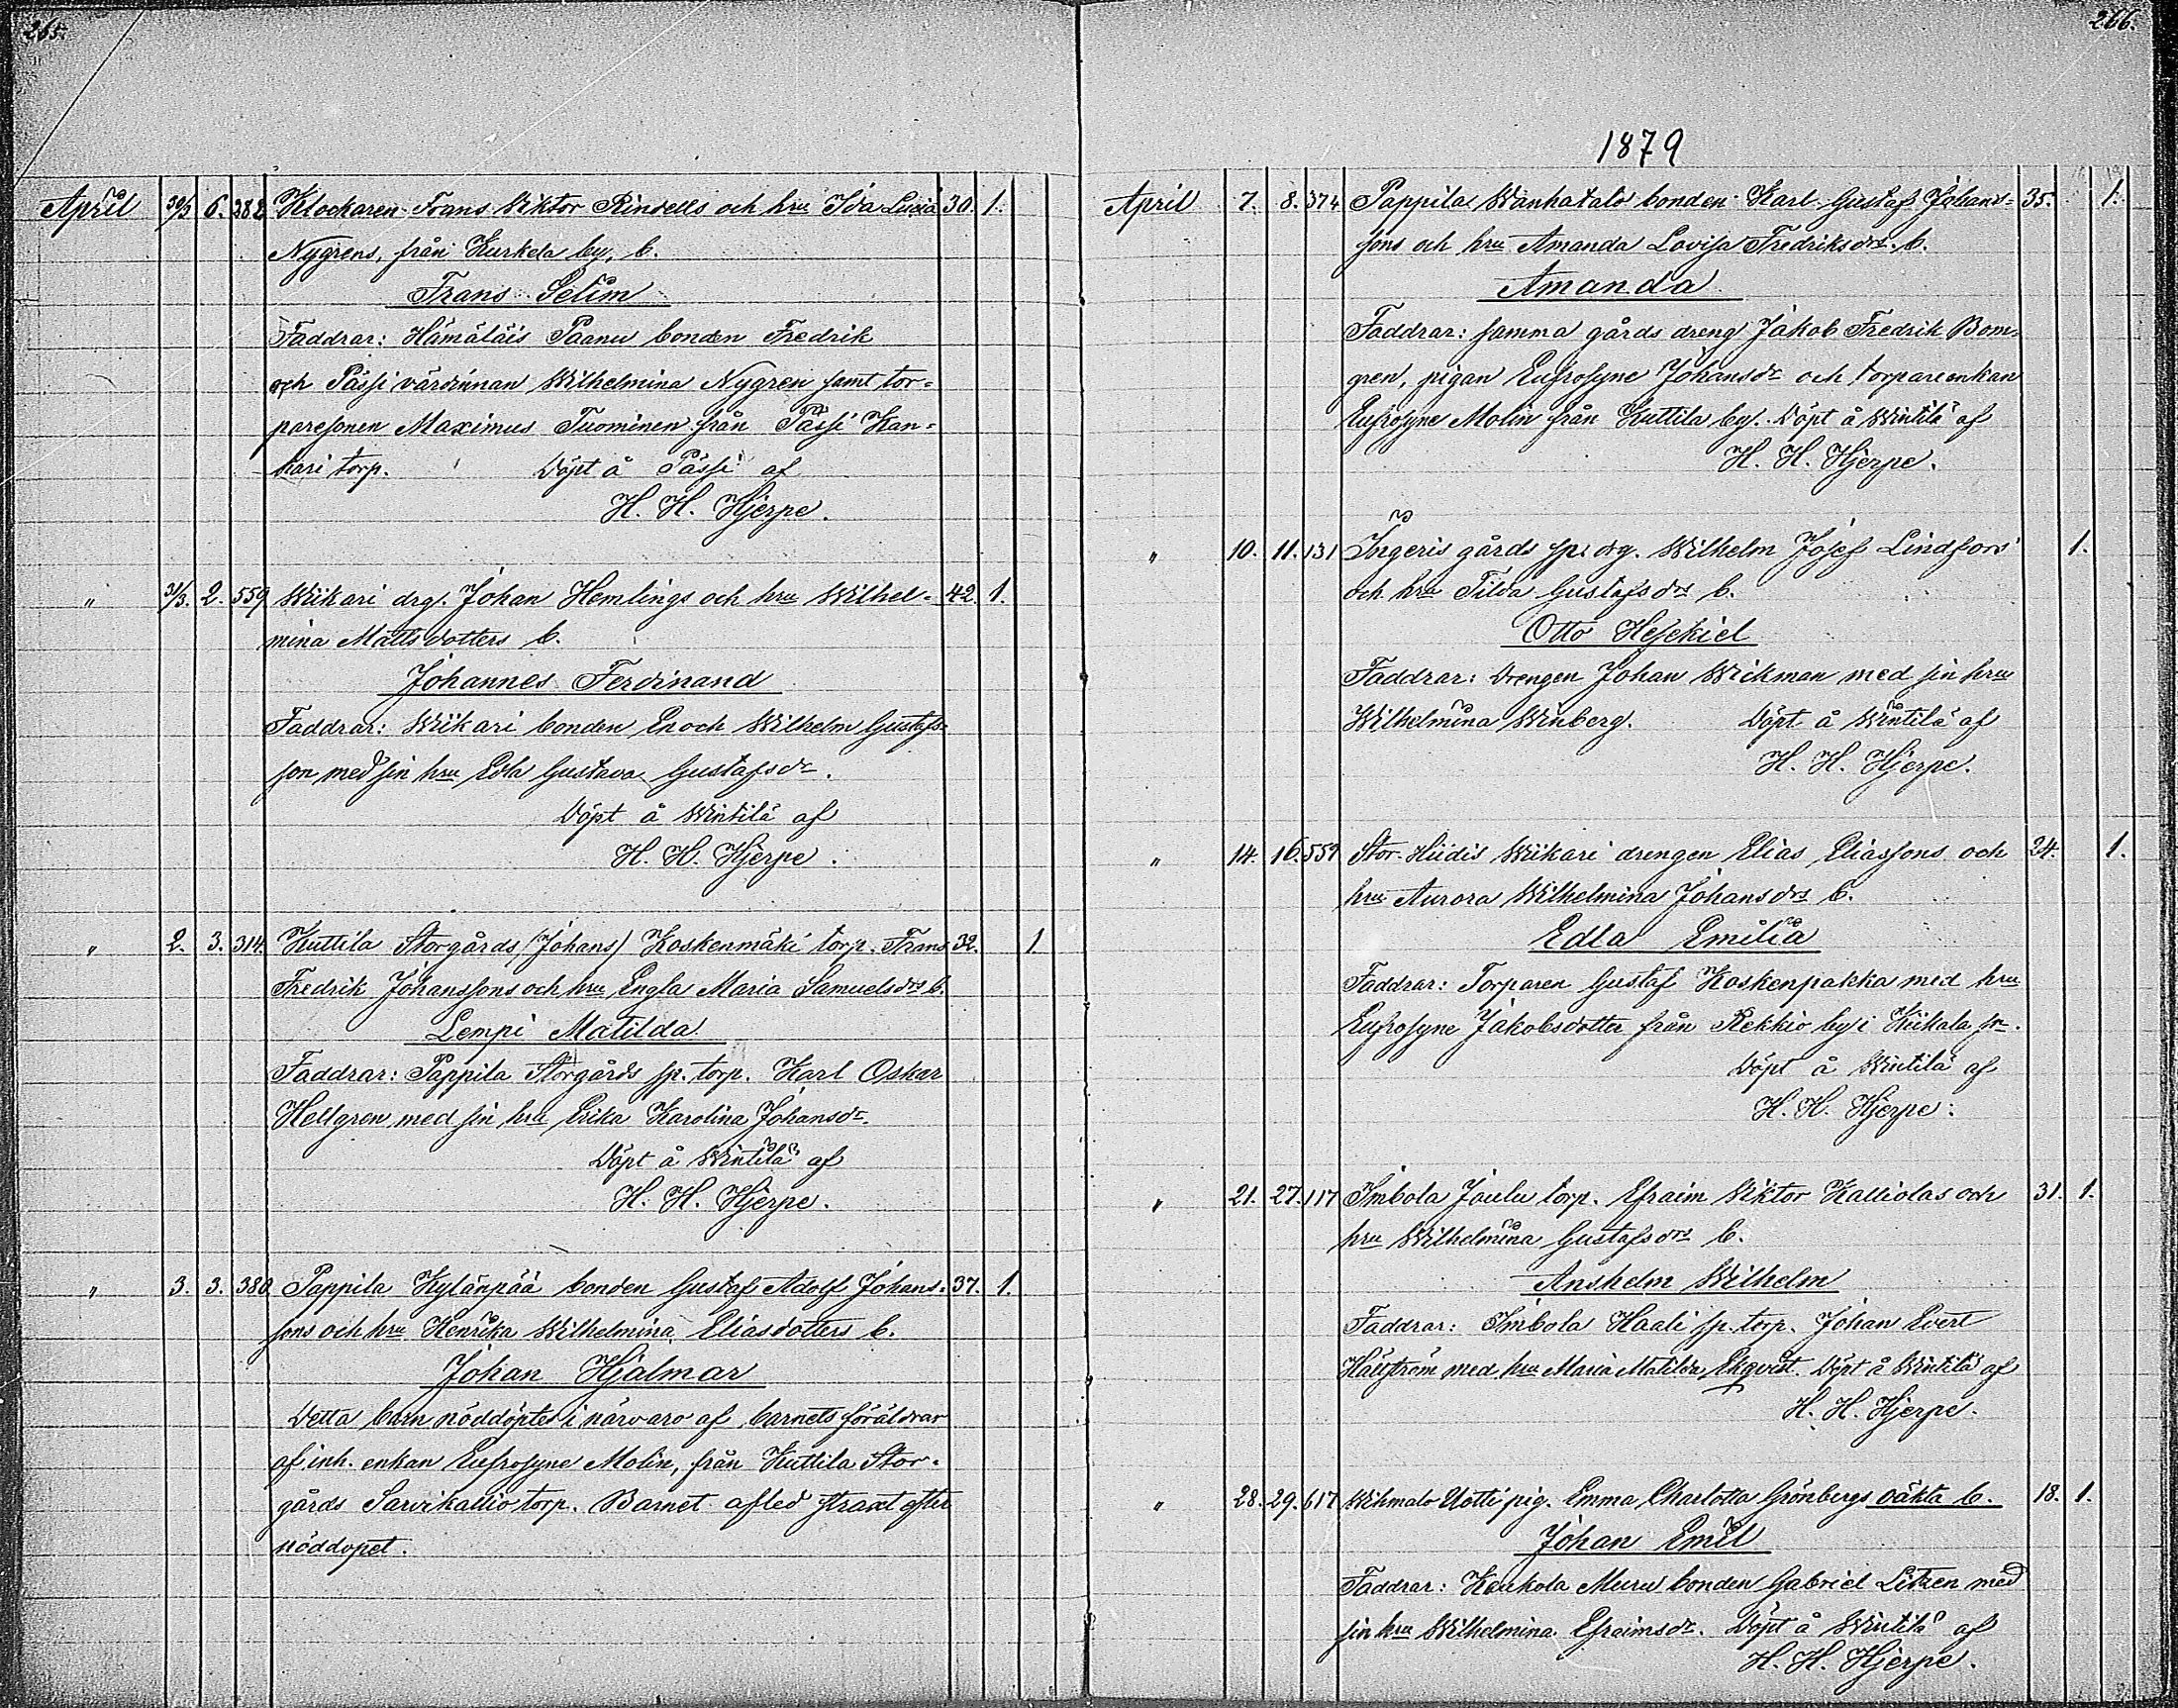 265.
April 30/3 6. 382 Klockaren Frans Viktor Rindells och hru Ida Lucia 30. 1.
Nygrens, från Kurkela by, b.
Frans Selim
Faddrar: Hämäläis Paanu bonden Fredrik
och Pässi värdinnan Wilhelmina Nygren samt tor=
paresonen Maximus Tuominen från Pässi Kan=
kari torp. Döpt å Pässi af
H. H. Hjerpe.
" 31/3. 2. 559 Wiikari drg. Johan Hemlings och hru Wilhel= 42. 1.
mina Mattsdotters b.
Johannes Ferdinand
Faddrar: Wiikari bonden Enoch Wilhelm Gustafs=
son med sin hru Edla Gustava Gustafsdr.
Döpt å Wintilä af
H. H. Hjerpe.
" 2. 3. 314. Kuttila Storgårds (Johans) Koskenmäki torp. Frans 32. 1.
Fredrik Johanssons och hru Engla Maria Samuelsdrs b.
Lempi Matilda
Faddrar: Pappila Storgårds sp. torp. Karl Oskar
Hellgren med sin hru Erika Karolina Johansdr.
Döpt å Wintilä af
H. H. Hjerpe.
" 3. 3. 380 Pappila Kylänpää bonden Gustaf Adolf Johans= 37. 1.
sons och hru Henrika Wilhelmina Eliasdotters b.
Johan Hjalmar
Detta barn nöddöptes i närvaro af barnets föräldrar
af inh. enkan Eufrosyne Molin, från Kuttila Stor=
gårds Sarvikallio torp. Barnet afled straxt efter
nöddopet.
266.
1879
April 7. 8. 374 Pappila Wanhatalo bonden Karl Gustaf Johans= 35. 1.
sons och hru Amanda Lovisa Fredriksdrs. b.
Amanda
Faddrar: samma gårds dreng Jakob Fredrik Bom=
gren, pigan Eufrosyne Johansdr och torpareenkan
Eufrosyne Molin från Kuttila by. Döpt å Wintilä af
H. H. Hjerpe.
" 10. 11. 131 Ingeris gårds sp. drg. Wilhelm Josef Lindfors 1.
och hru Tilda Gustafsdrs b.
Otto Hesekiel
Faddrar: Drengen Johan Wickman med sin hru
Wilhelmina Winberg. Döpt å Wintilä af
H. H. Hjerpe.
" 14. 16. 559 Stor-Hiidis Wiikari drengen Elias Eliassons och 24. 1.
hru Aurora Wilhelmina Johansdrs b.
Edla Emilia
Faddrar: Torparen Gustaf Koskenpakka med hru
Eufrosyne Jakobsdotter från Rekkio by i Kiikala sn.
Döpt å Wintilä af
H. H. Hjerpe.
" 21. 27. 117 Imbola Joulu torp. Efraim Viktor Kalliolas och 31. 1.
hru Wilhelmina Gustafsdrs b.
Anshelm Wilhelm
Faddrar: Imbola Haali sp. torp. Johan Evert
Hällström med hru Maria Matilda Ekqvist. Döpt å Wintilä af
H. H. Hjerpe.
" 28. 29. 617 Wihmalo Uotti pig. Emma Charlotta Grönbergs oäkta b. 18. 1.
Johan Emil
Faddrar: Kaukola Muru bonden Gabriel Litzen med
sin hru Wilhelmina Efraimsdr. Döpt å Wintilä af
H. H. Hjerpe.